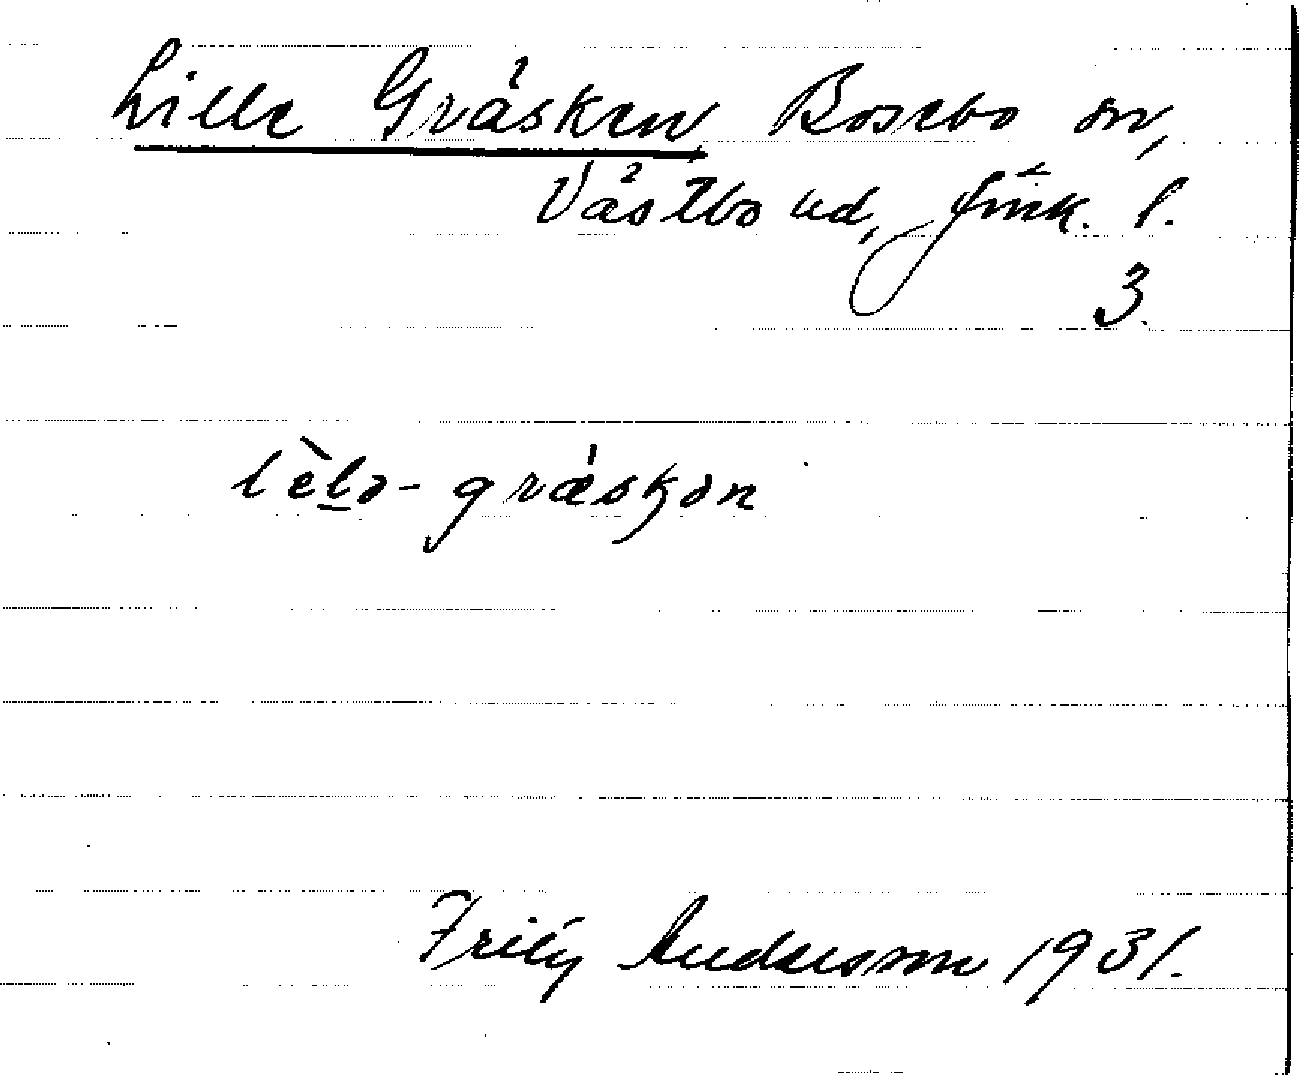 Lille Gräsken Bosebo sn,
Västbo hd, Jönk. l.
3.
lèlə-gräskən
Fritz Andersson 1931.